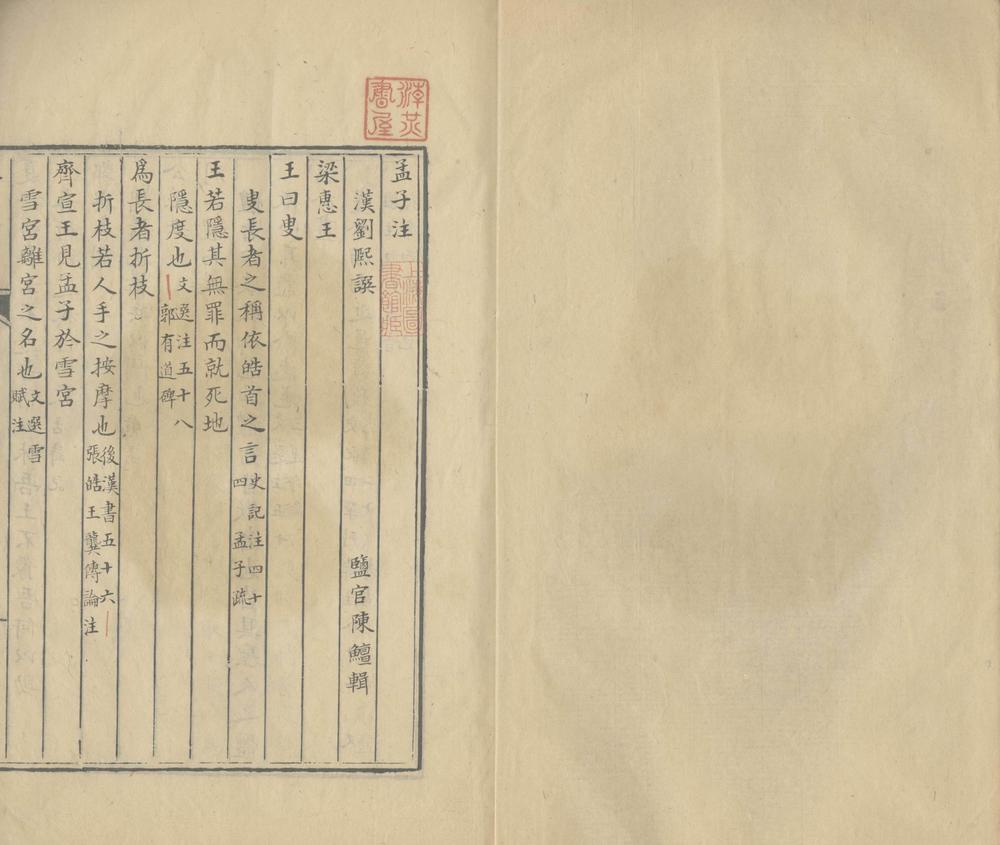 孟子注
漢劉熙譔 鹽官陳鱣輯
梁惠王
王曰叟
叟長者之稱依皓首之言史記注四十四 孟子疏
王若隱其無罪而就死地
隱度也文選注五十八郭有道碑
爲長者折枝
折枝若人手之按摩也後漢書五十六張皓王龔傳論注
齊宣王見孟子於雪宮
雪宮離宮之名也文選雪賦注